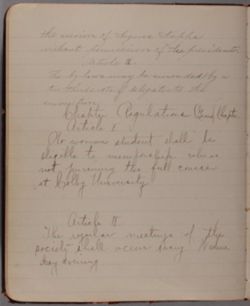 the session of Sigma Kappa
without permission of the president.
Article X.
The by laws may be amended by a
two thirds vote of
Chapter Regulations
Article I.
No woman student shall be
eligible to membership unless
pursuing the full course
at Colby University.
Article II
The regular meetings of the
society shall occur every Wednes
day evening.